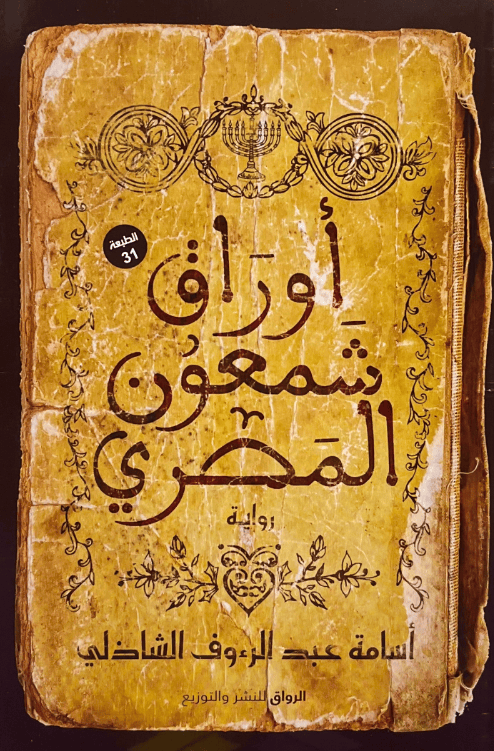 الطبعة
31
أَورَاق
شِمعُون
المَصري
رواية
أسامة عبد الرءوف الشاذلي
الرواق للنشر والتوزيع